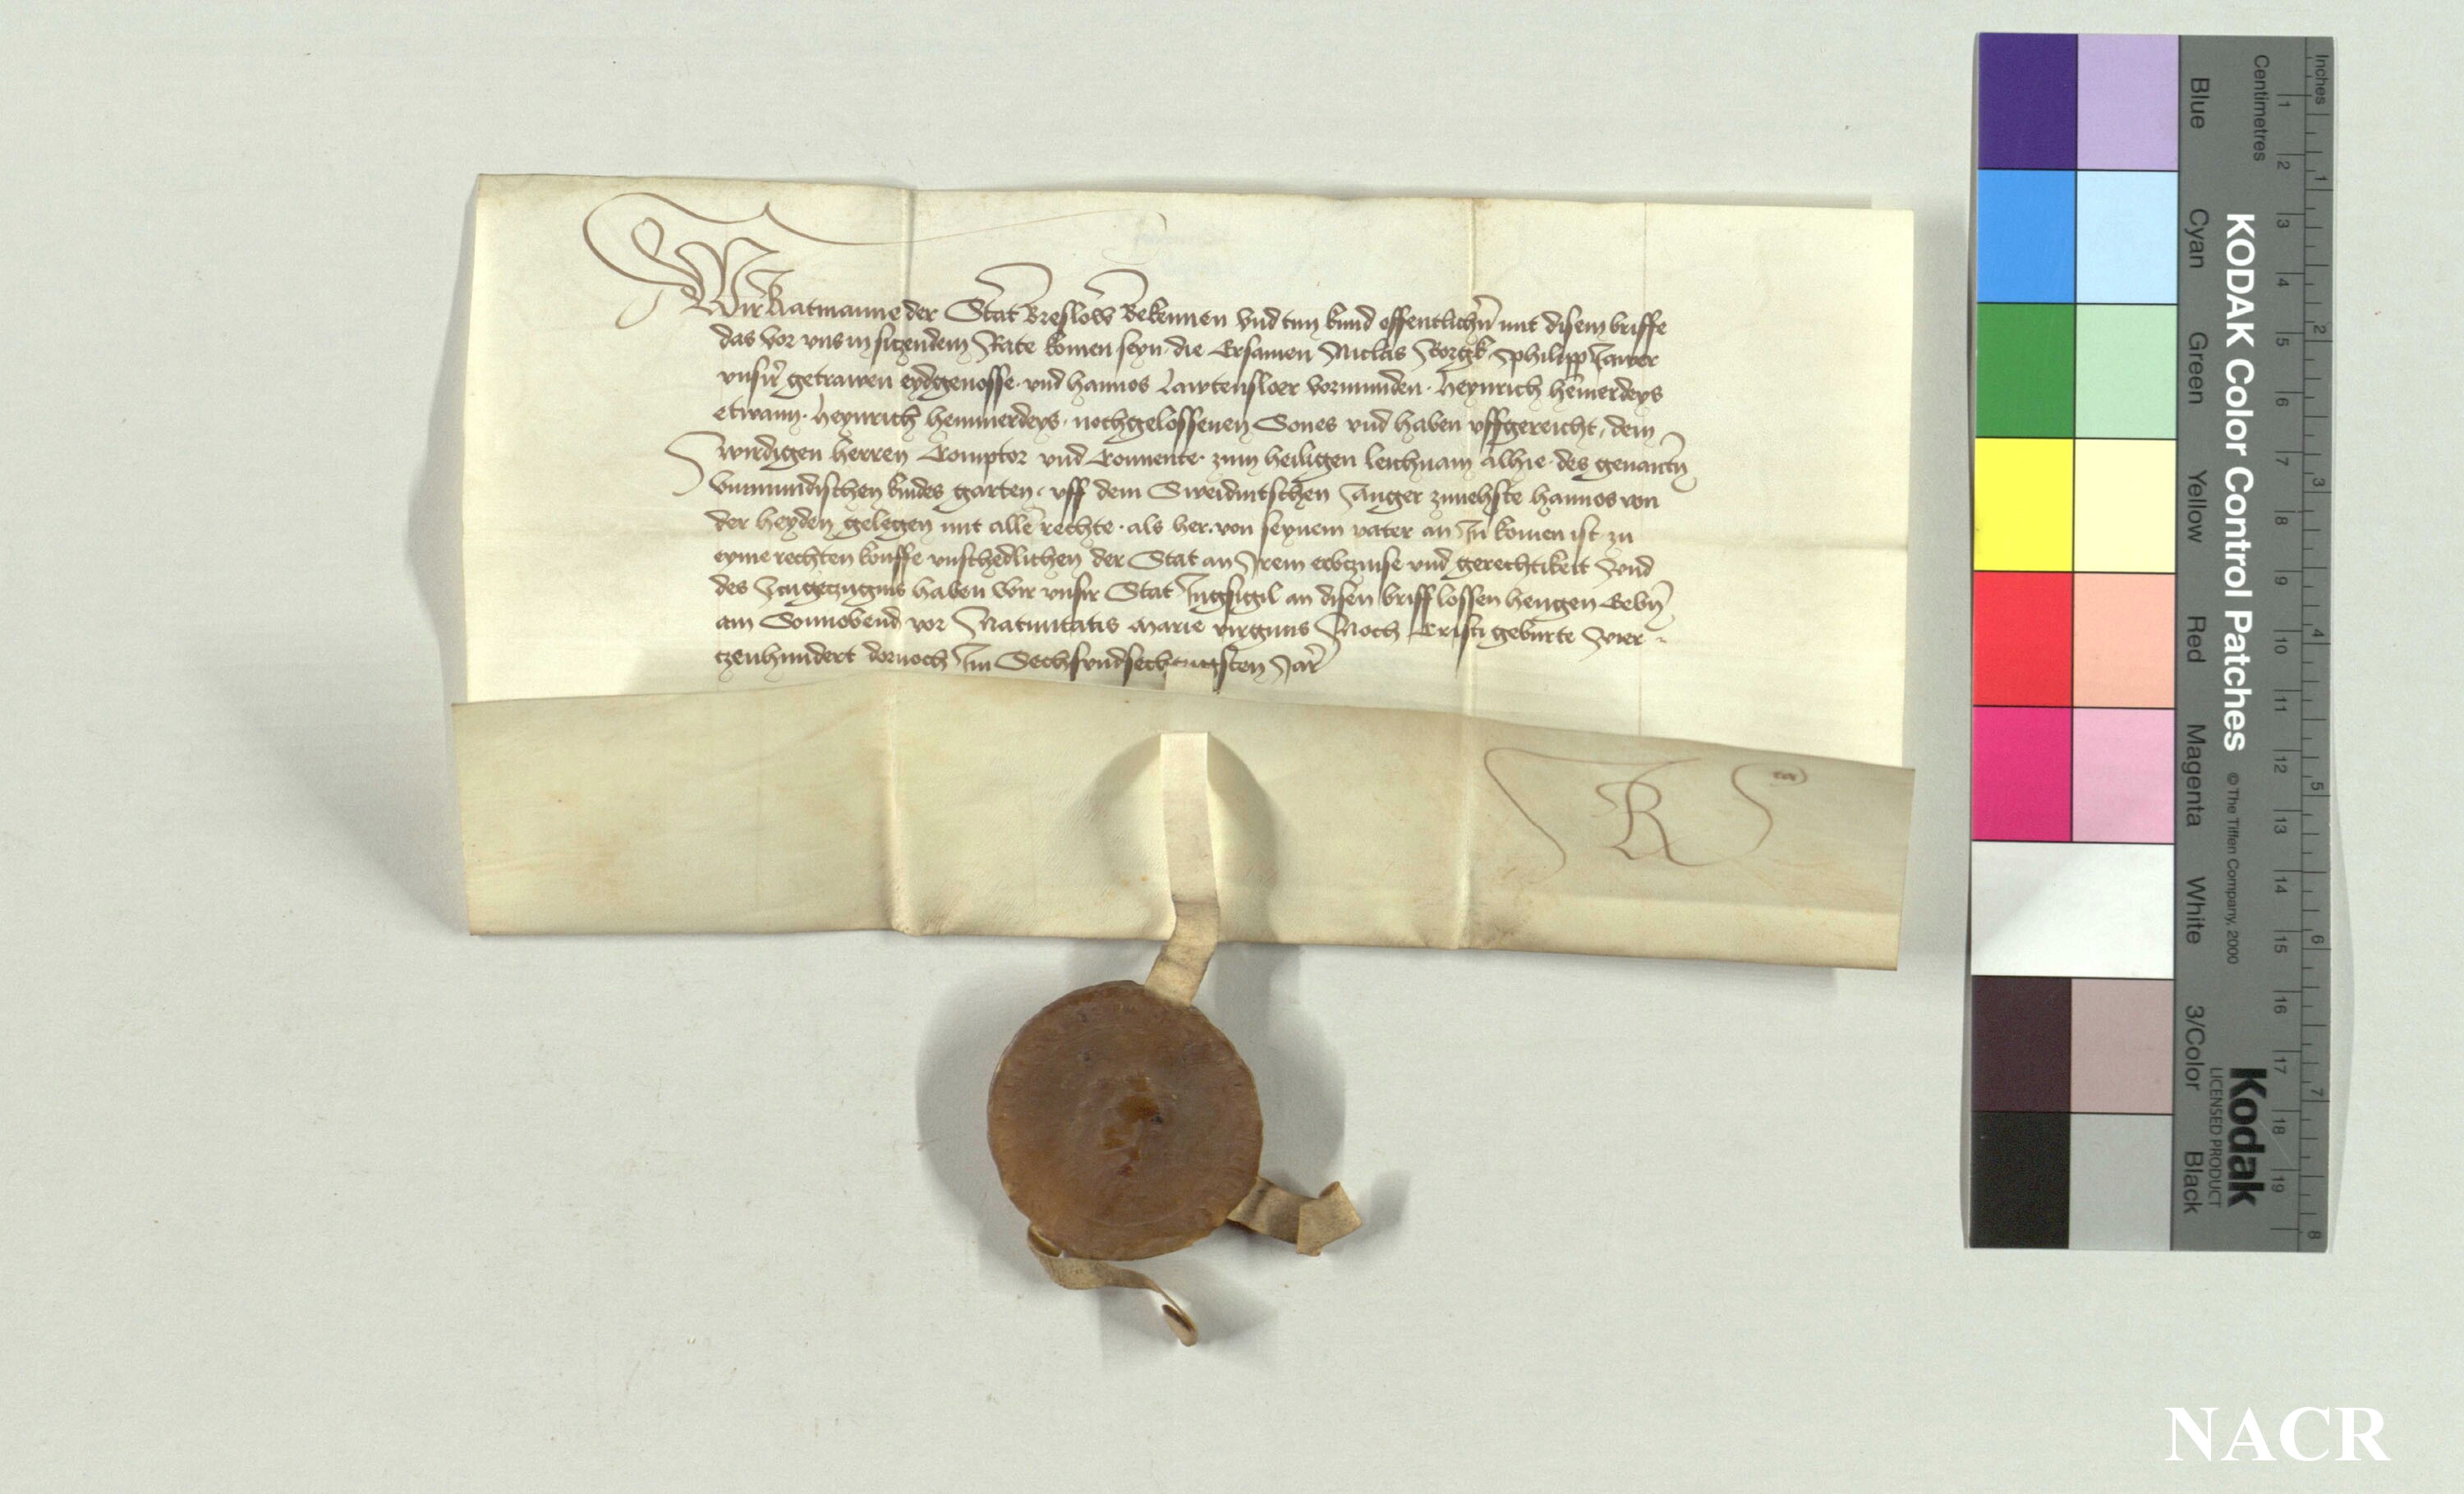 Wir Ratmanne der Stat Breslow Bekennen vnd tun kund offentlichn̄ mit disem briffe
das vor vns in siczendem Rate komen seyn die Ersamen Niclas Philipp
vnsir getrawen eydgenosse vnd hannos vormunden Heynrich hem̄erdeys
etwann Heynrich hemmerdeys nochgelossenen Sones vnd haben vffgereicht dem
wirdigen herren Comptor vnd Conuente zum heiligen leichnam alhie des genantn̄
vnmundischen kindes garten vff dem Sweidnitschen Anger zunehste hannos von
der heyden gelegen mit alle rechte als her von seynem vater an In komen ist zu
eyme rechten kouffe vnschedlichen der Stat an Irem erbczinse vnd gerechtikeit Vnd
des Zcugeczugnis haben wir vnsir Stat Ingsigil an disen briff lossen hengen Gebn̄
am Sonnobend vor Natiuitatis Marie virginis Noch Cristi geburte Vier-
czenhundert dornoch Im Sechsvndsechczigsten Jar
R
KODAK Color Control Patches © The Tiffen Company, 2000
Kodak
LICENSED PRODUCT
Inches 1 2 3 4 5 6 7 8
Centimetres 1 2 3 4 5 6 7 8 9 10 11 12 13 14 15 16 17 18 19
Blue Cyan Green Yellow Red Magenta White 3/Color Black
NACR